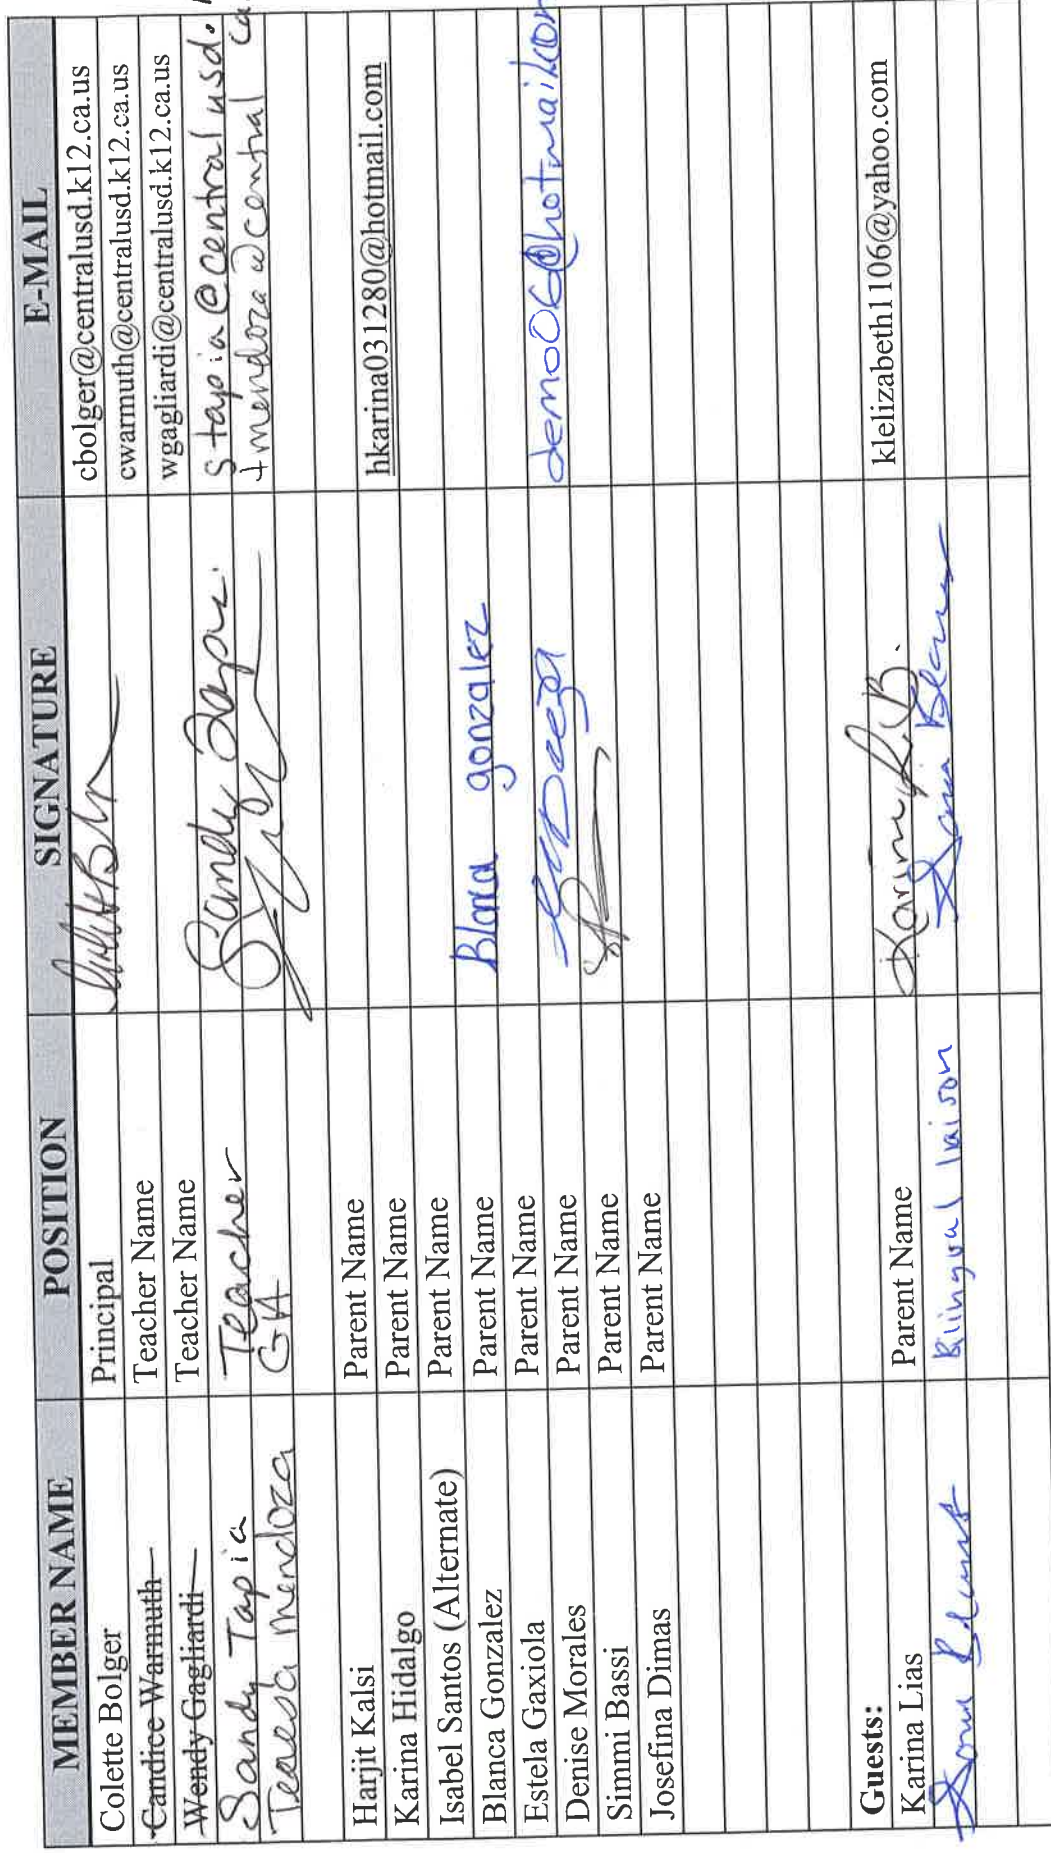 MEMBER NAME POSITION SIGNATURE E-MAIL
Colette Bolger Principal cbolger@centralusd.k12.ca.us
Candice Warmuth Teacher Name cwarmuth@centralusd.k12.ca.us
Wendy Gagliardi Teacher Name wgagliardi@centralusd.k12.ca.us
Sandy Tapia Teacher Sandy Tapia stapia@centralusd.
Teresa Mendoza tmendoza@central
Harjit Kalsi Parent Name
Karina Hidalgo Parent Name hkarina031280@hotmail.com
Isabel Santos (Alternate) Parent Name
Blanca Gonzalez Parent Name Blanca gonzalez
Estela Gaxiola Parent Name
Denise Morales Parent Name demo06@hotmail.com
Simmi Bassi Parent Name
Josefina Dimas Parent Name
Guests:
Karina Lias Parent Name klelizabeth1106@yahoo.com
Bilingual laison